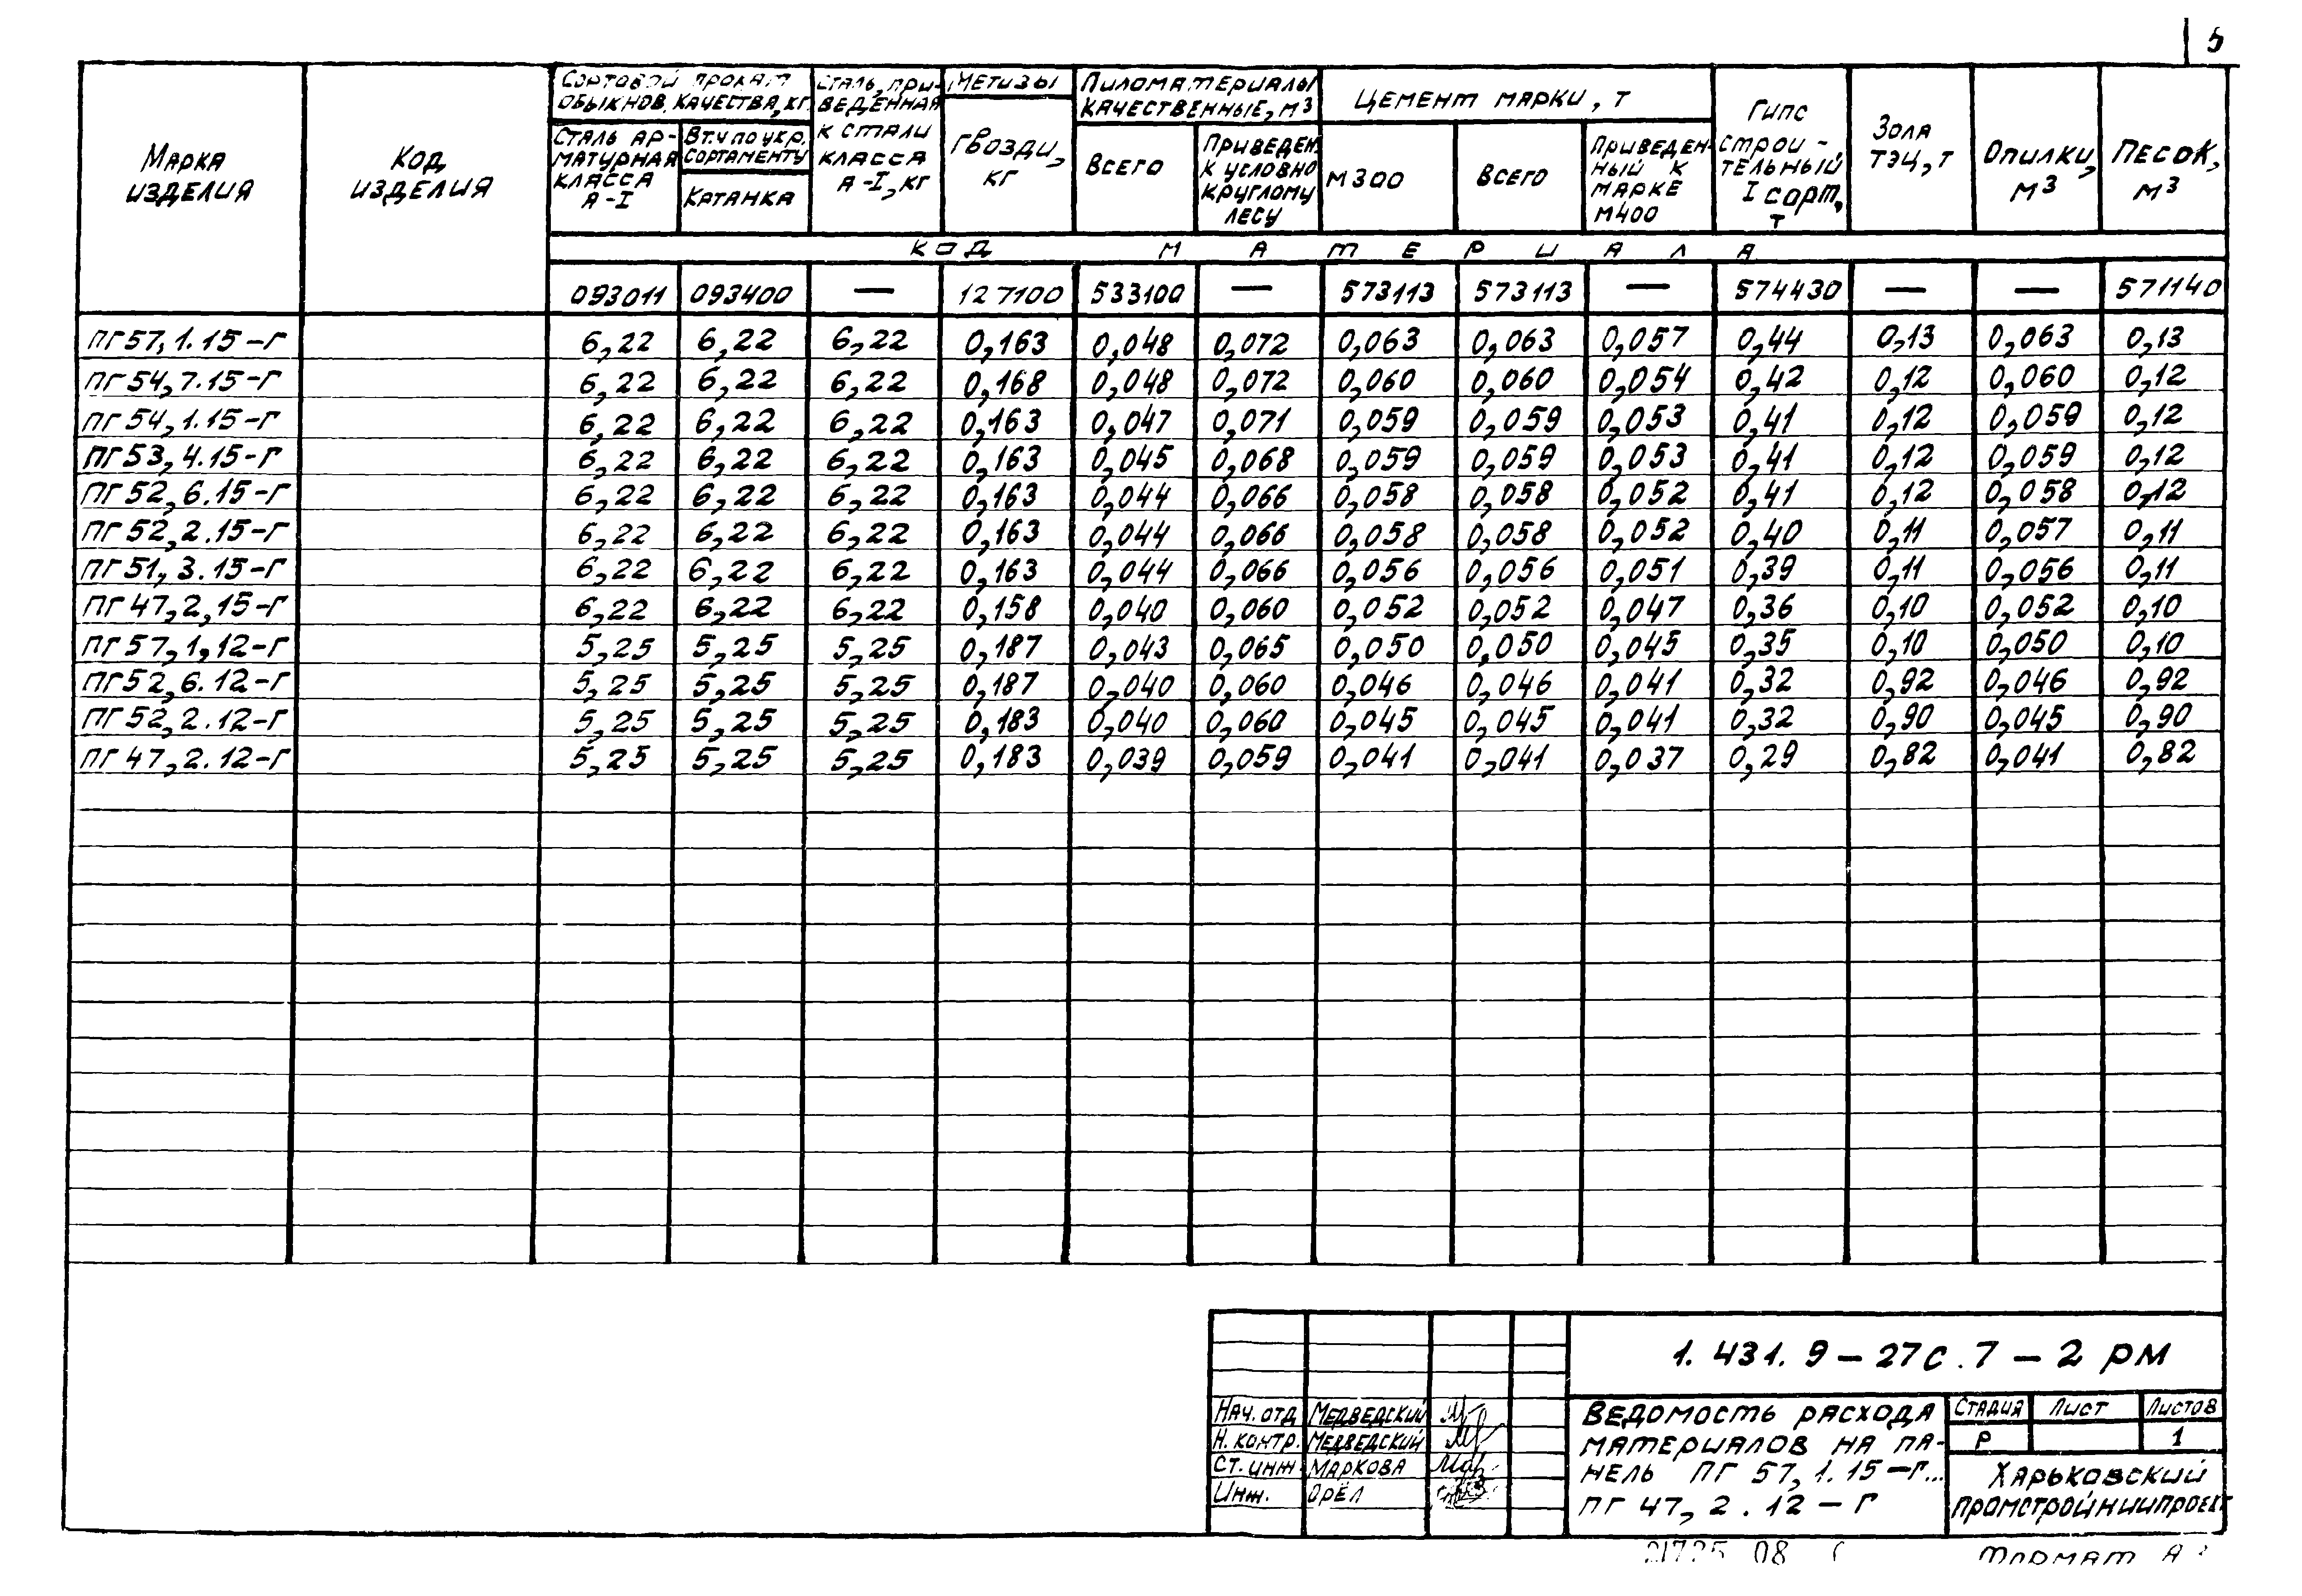 5
Марка изделия
Код изделия
Сортовой прокат обыкнов. качества, кг
Сталь арматурная класса А-I
Вт.ч по укр. сортаменту
Катанка
Сталь, приведенная к стали класса А-I, кг
Метизы
Гвозди, кг
Пиломатериалы качественные, м³
Всего
Приведен. к условно круглому лесу
Цемент марки, т
М300
Всего
Приведенный к марке М400
Гипс строительный I сорт, т
Зола ТЭЦ, т
Опилки, м³
Песок, м³
Код материала
093011 093400 — 127100 533100 — 573113 573113 — 574430 — — 571140
ПГ57,1.15-Г 6,22 6,22 6,22 0,163 0,048 0,072 0,063 0,063 0,057 0,44 0,13 0,063 0,13
ПГ54,7.15-Г 6,22 6,22 6,22 0,168 0,048 0,072 0,060 0,060 0,054 0,42 0,12 0,060 0,12
ПГ54,1.15-Г 6,22 6,22 6,22 0,163 0,047 0,071 0,059 0,059 0,053 0,41 0,12 0,059 0,12
ПГ53,4.15-Г 6,22 6,22 6,22 0,163 0,045 0,068 0,059 0,059 0,053 0,41 0,12 0,059 0,12
ПГ52,6.15-Г 6,22 6,22 6,22 0,163 0,044 0,066 0,058 0,058 0,052 0,41 0,12 0,058 0,12
ПГ52,2.15-Г 6,22 6,22 6,22 0,163 0,044 0,066 0,058 0,058 0,052 0,40 0,11 0,057 0,11
ПГ51,3.15-Г 6,22 6,22 6,22 0,163 0,044 0,066 0,056 0,056 0,051 0,39 0,11 0,056 0,11
ПГ47,2,15-Г 6,22 6,22 6,22 0,158 0,040 0,060 0,052 0,052 0,047 0,36 0,10 0,052 0,10
ПГ57,1,12-Г 5,25 5,25 5,25 0,187 0,043 0,065 0,050 0,050 0,045 0,35 0,10 0,050 0,10
ПГ52,6.12-Г 5,25 5,25 5,25 0,187 0,040 0,060 0,046 0,046 0,041 0,32 0,92 0,046 0,92
ПГ52,2.12-Г 5,25 5,25 5,25 0,183 0,040 0,060 0,045 0,045 0,041 0,32 0,90 0,045 0,90
ПГ47,2.12-Г 5,25 5,25 5,25 0,183 0,039 0,059 0,041 0,041 0,037 0,29 0,82 0,041 0,82
1.431.9-27с.7-2 РМ
Нач. отд Медведский
Н. контр. Медведский
Ст. инж. Маркова
Инж. Орёл
Ведомость расхода
материалов на па-
нель ПГ 57,1.15-Г...
ПГ 47,2.12-Г
Стадия Лист Листов
Р 1
Харьковский
Промстройниипроект
08
Формат А